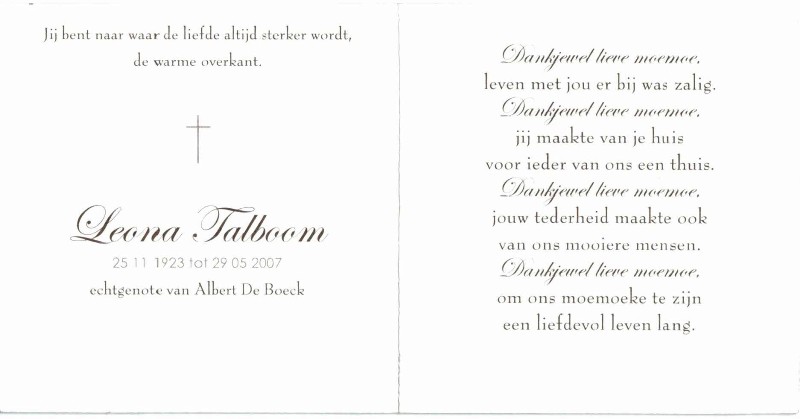 Jij bent naar waar de liefde altijd sterker wordt,
de warme overkant.
Leona Talboom
25 11 1923 tot 29 05 2007
echtgenote van Albert De Boeck
Dankjewel lieve moemoe,
leven met jou er bij was zalig.
Dankjewel lieve moemoe,
jij maakte van je huis
voor ieder van ons een thuis.
Dankjewel lieve moemoe,
jouw tederheid maakte ook
van ons mooiere mensen.
Dankjewel lieve moemoe,
om ons moemoeke te zijn
een liefdevol leven lang.